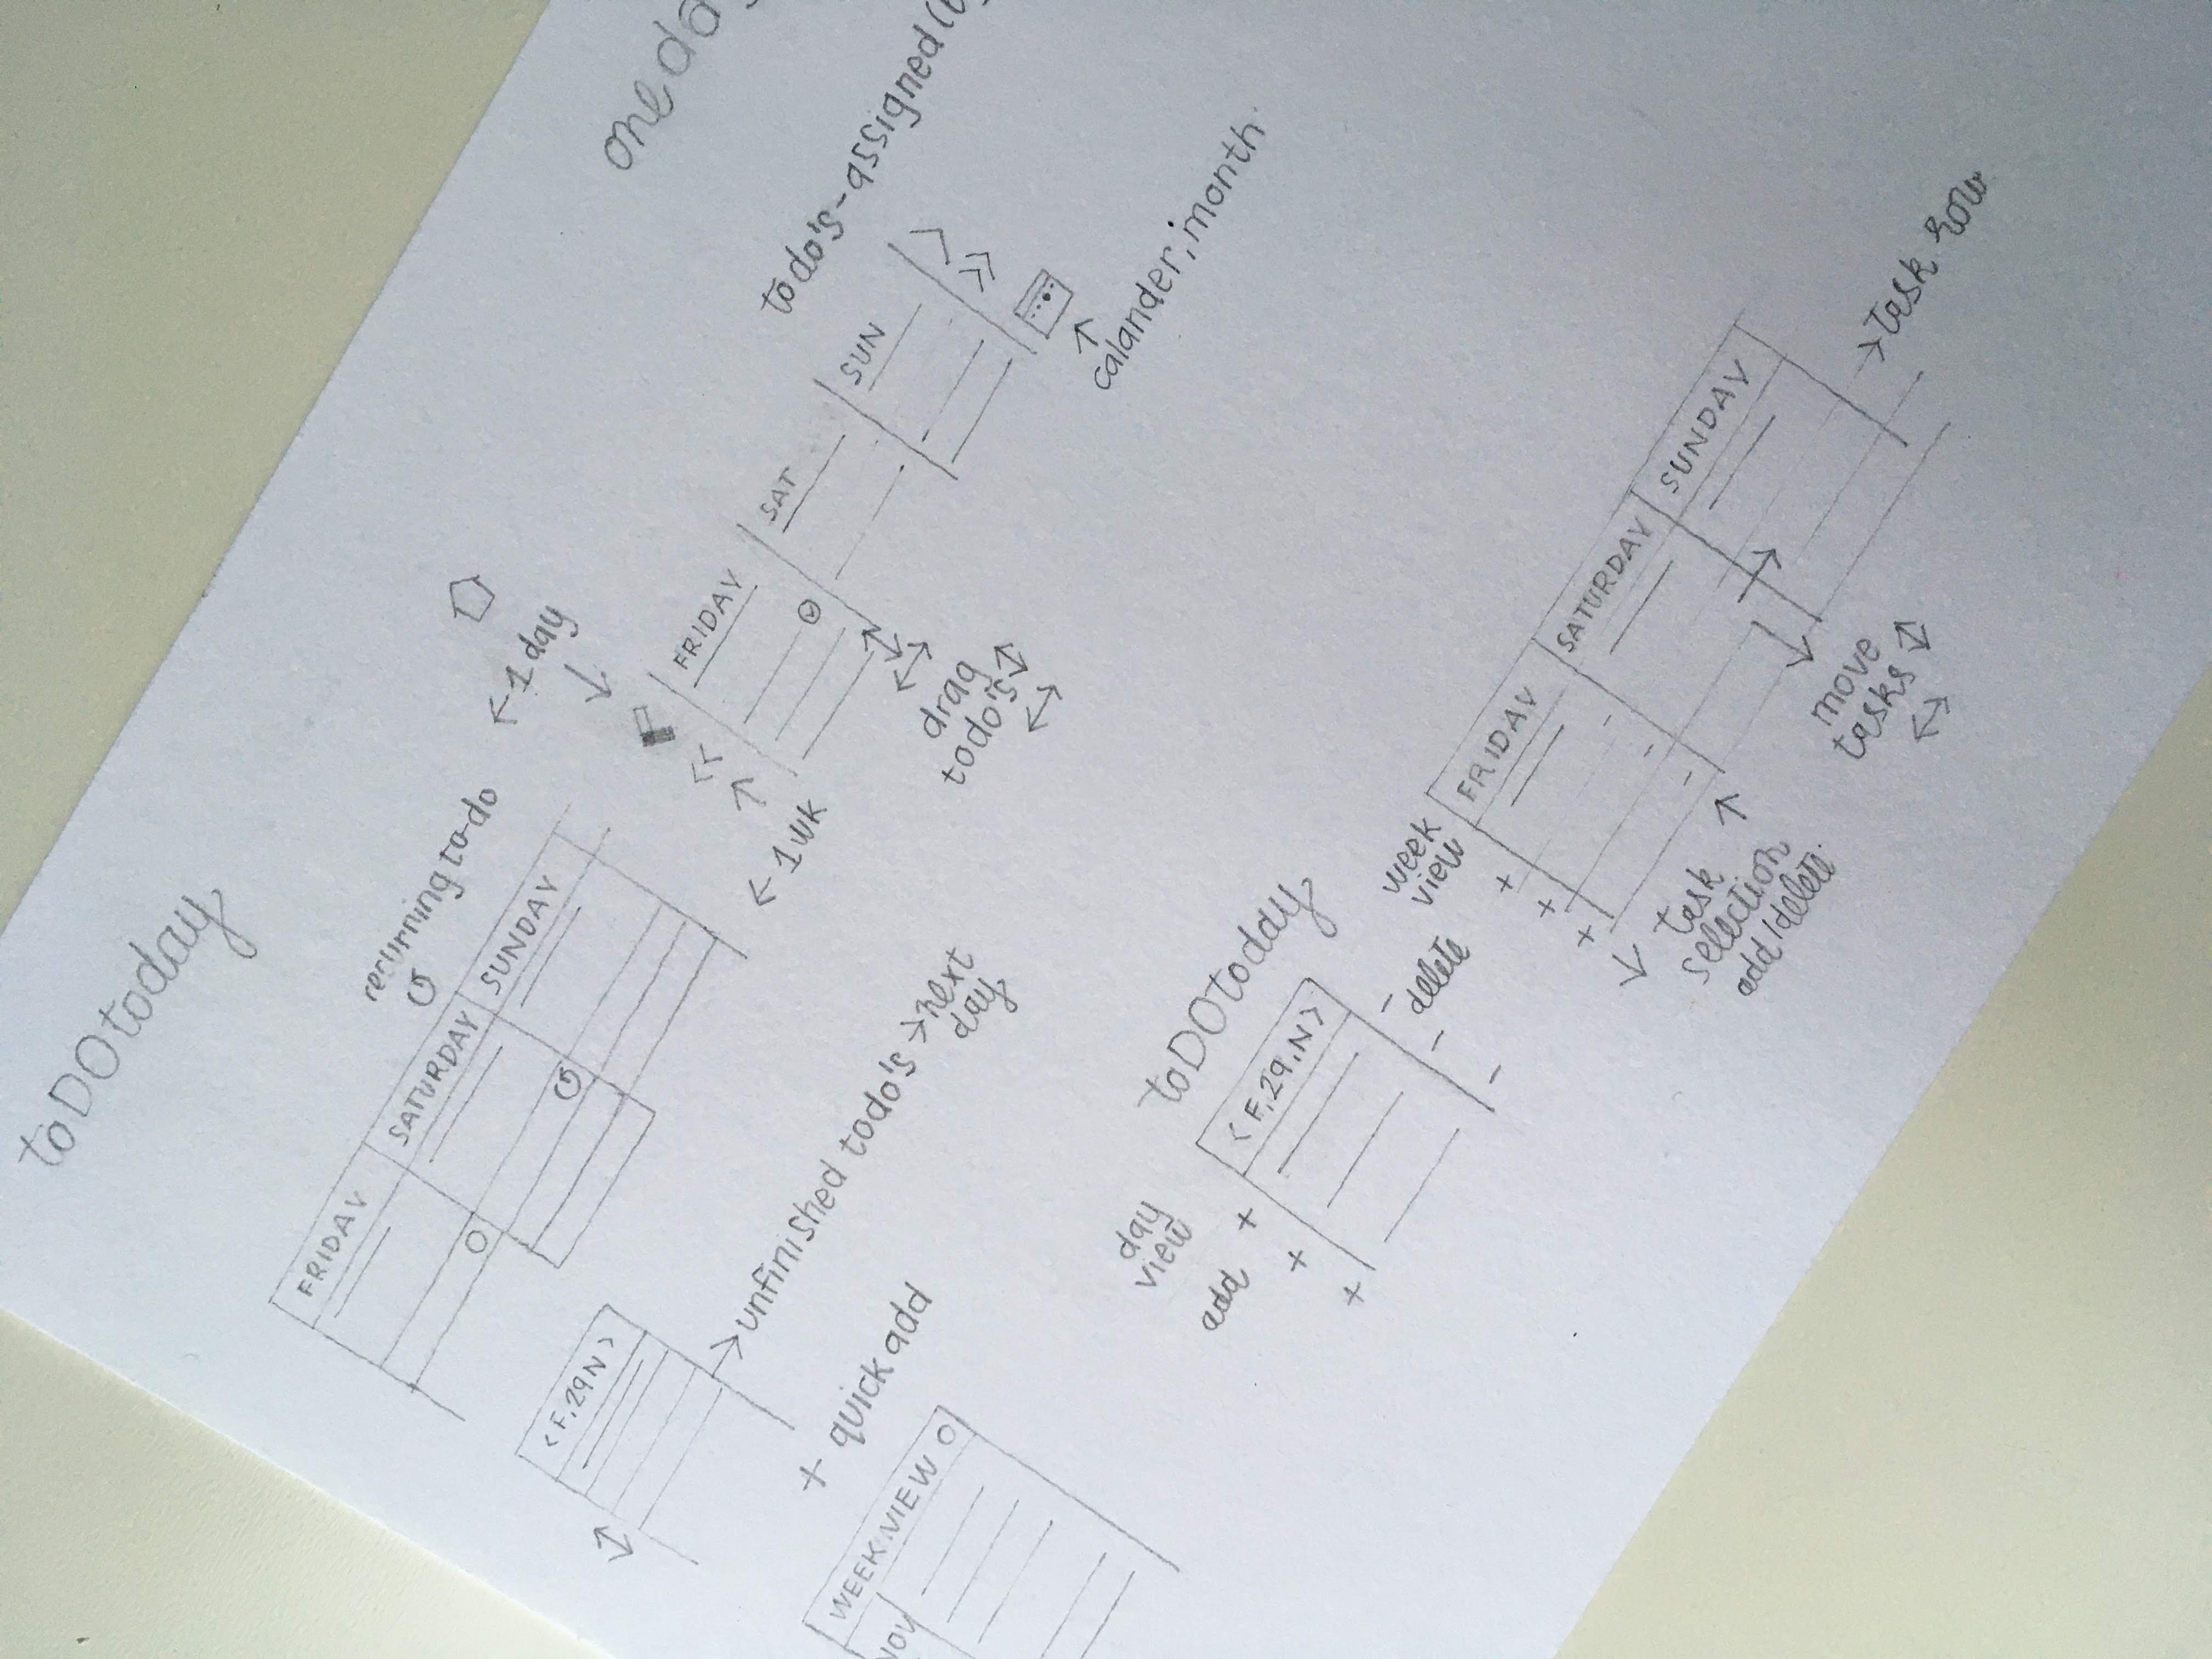 toDOtoday
FRIDAY
SATURDAY
SUNDAY
recurring to-do
< F, 29 N >
→ unfinished todo's → next
day
+ quick add
WEEK VIEW
NOV
← 1 day
<<
← 1 wk
FRIDAY
SAT
SUN
>
>>
drag
todo's
calander, month
todo's - assigned (
day
view
add +
+
+
toDOtoday
< F, 29, N >
- delete
-
-
week
view
FRIDAY
SATURDAY
SUNDAY
+
+
+
-
-
-
task
selection
add/delete
move
tasks
→ Task row